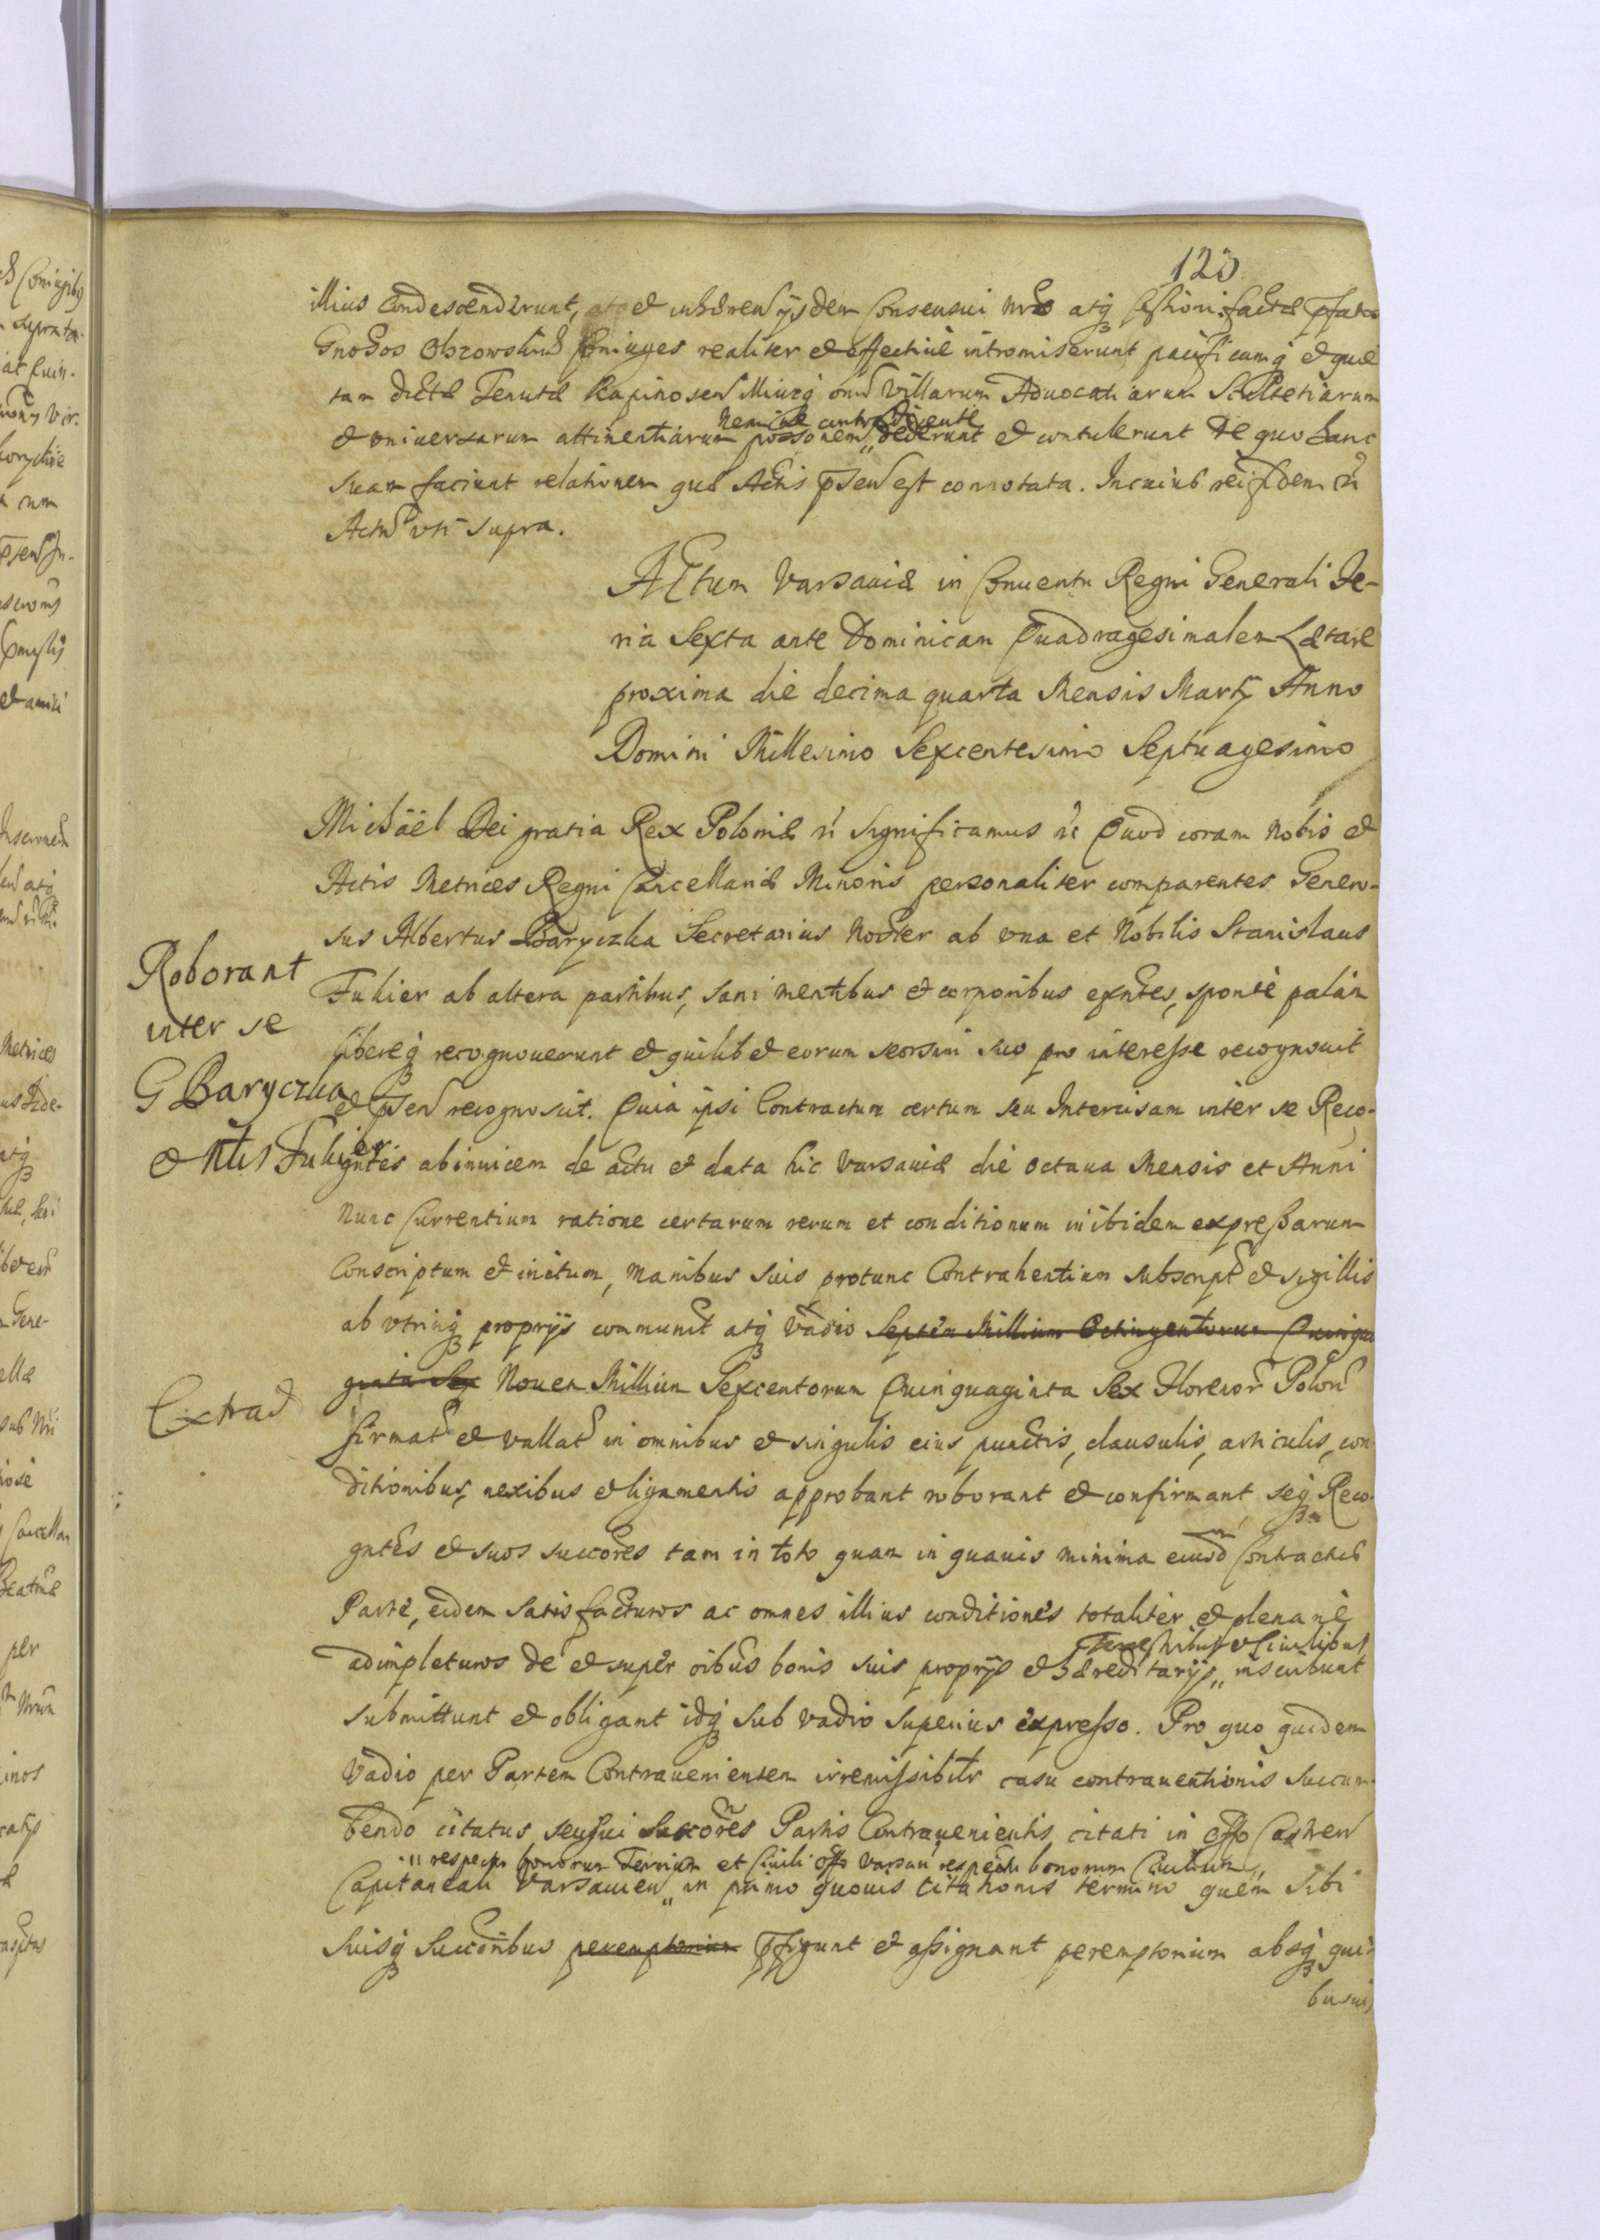 123
illius condescenderunt, atq et inhaeren ijsdem Consensui nro atq Cessioni factae pfatos
Gnosos Obrowskie Coniuges realiter et effective intromiserunt pacificamq et quie
tam dictae Tenutae Kapinosen illiusq oium Villarum Advocatiarum Scultetiarum
et universarum attinentiarum possonem nemine contradicente dederunt et contulerunt De quo hanc
suam faciunt relationem quae Actis psen est connotata. In cuius rei fidem
Actum uti supra.
Actum Varsaviae in Conventu Regni Generali Fe-
ria Sexta ante Dominicam Quadragesimalem Laetare
proxima die decima quarta Mensis Martij Anno
Domini Millesimo Sexcentesimo Septuagesimo
Michaël Dei gratia Rex Poloniae Significamus Quod coram Nobis et
Actis Metrices Regni Cancellariae Minoris personaliter comparentes Genero-
sus Albertus Baryczka Secretarius Noster ab una et Nobilis Stanislaus
Fukier ab altera partibus, sani mentibus et corporibus exntes, sponte palam
libereq recognoverunt et quilibet eorum seorsim suo pro interesse recognovit
et psen recognoscit. Quia ipsi Contractum certum seu Intercisam inter se Reco-
gntes abinvicem de actu et data hic Varsaviae die octava Mensis et Anni
nunc Currentium ratione certarum rerum et conditionum inibidem expressarum
Conscriptum et initum, manibus suis protunc Contrahentium subscript et sigillis
ab utrinq proprijs communit atq vadio Septem Millium Octingentorum Quinqua
ginta Sex Novem Millium Sexcentorum Quinquaginta Sex Florenor Polon
firmat et vallat in omnibus et singulis eius punctis, clausulis, articulis, con
ditionibus, nexibus et ligamentis approbant roborant et confirmant, seq Reco-
gntes et suos succores tam in toto quam in quavis minima eiusd Contractus
Parte, eidem satisfacturos ac omnes illius conditiones totaliter et plenarie
adimpleturos de et super oibus bonis suis proprijs et haereditarijs Terrestribus et Civilibus inscribunt
submittunt et obligant idq sub vadio superius expresso. Pro quo quidem
Vadio per Partem Contravenientem irremissibiltr casu contraventionis succum-
bendo citatus, seu sui Succores Partis Contravenientis citati in offo Castren
Capitaneali Varsavien respectu bonorum Terrium et Civili offo Varsavi respectu bonorum Civilium in primo quovis citationis termino quem sibi
suisq Succoribus peremptorium pfigunt et assignant peremptorium absq qui-
busvis
Roborant
inter se
G Baryczka
et Nlis Fukier
Extrad